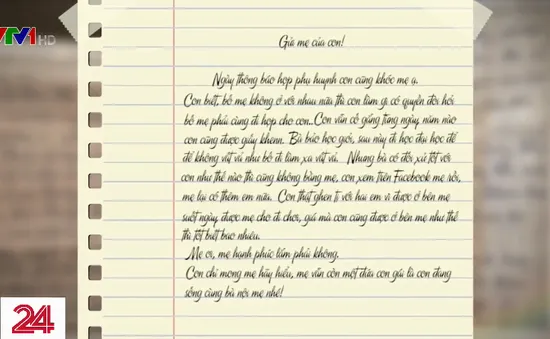 VTV1 HD
Gửi mẹ của con!
Ngày thông báo họp phụ huynh con cũng khóc mẹ ạ.
Con biết, bố mẹ không ở với nhau nữa thì con làm gì có quyền đòi hỏi
bố mẹ phải cùng đi họp cho con..Con vẫn cố gắng từng ngày, năm nào
con cũng được giấy khenn. Bà bảo học giỏi, sau này đi học đại học để
để không vất vả như bố đi làm xa vất vả. Nhưng bà có đối xử tốt với
con như thế nào thì cũng không bằng mẹ, con xem trên Facebook mẹ rồi,
mẹ lại có thêm em nữa. Con thật ghen tị với hai em vì được ở bên mẹ
suốt ngày, được mẹ cho đi chơi, giá mà con cũng được ở bên mẹ như thế
thì tốt biết bao nhiêu.
Mẹ ơi, mẹ hạnh phúc lắm phải không.
Con chỉ mong mẹ hãy hiểu, mẹ vẫn còn một đứa con gái là con đang
sống cùng bà nội mẹ nhé!
24